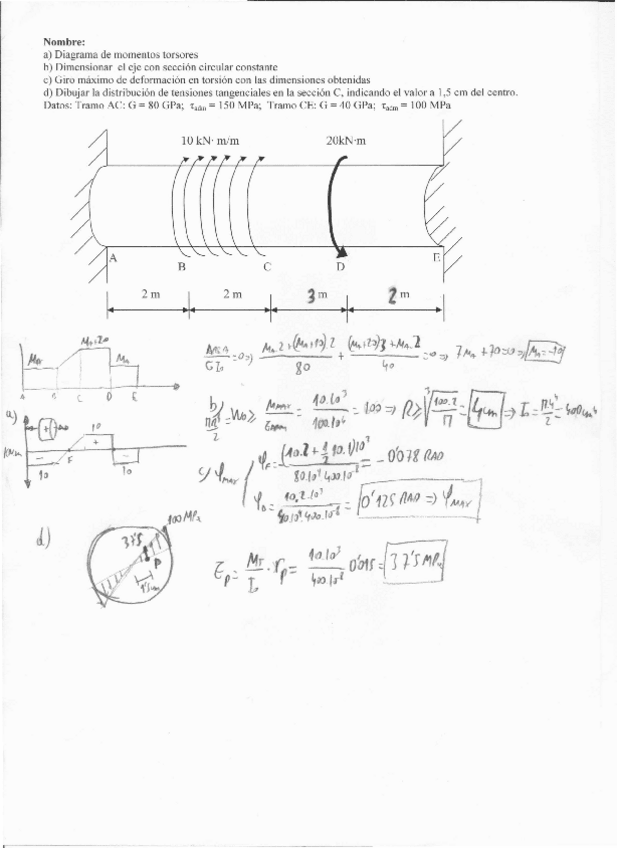 Nombre:
a) Diagrama de momentos torsores
b) Dimensionar el eje con sección circular constante
c) Giro máximo de deformación en torsión con las dimensiones obtenidas
d) Dibujar la distribución de tensiones tangenciales en la sección C, indicando el valor a 1,5 cm del centro.
Datos: Tramo AC: G = 80 GPa; τadm = 150 MPa; Tramo CE: G = 40 GPa; τadm = 100 MPa
10 kN· m/m 20kN·m
A B C D E
2 m 2 m 3 m 2 m
M_A M_A+20 M_A
A B C D E
=0=> (M_A·2+(M_A+10)·2)/80 + ((M_A+20)3+M_A·2)/40 =0=> 7M_A+70=0=> M_A=-10
a)
KNm 10 + - F - 10 10
b) πR³/2 = W_0 ≥ = 10·10³/100·10⁶ = 100 => R ≥ ³√(100·2/π) = 4cm => I_0 = π4⁴/2 = 400cm⁴
c) φ_MAX φ_F = (10·2+1/2 10·1)10³/80·10⁹ 400·10⁻⁸ = -0'078 RAD
φ_D = 10·2·10³/40·10⁹ 400·10⁻⁸ = 0'125 RAD => φ_MAX
d) 100 MPa 37'5 P 1'5cm
τ_P = M_T/I_0 · r_P = 10·10³/400·10⁻⁸ 0'015 = 37'5 MPa